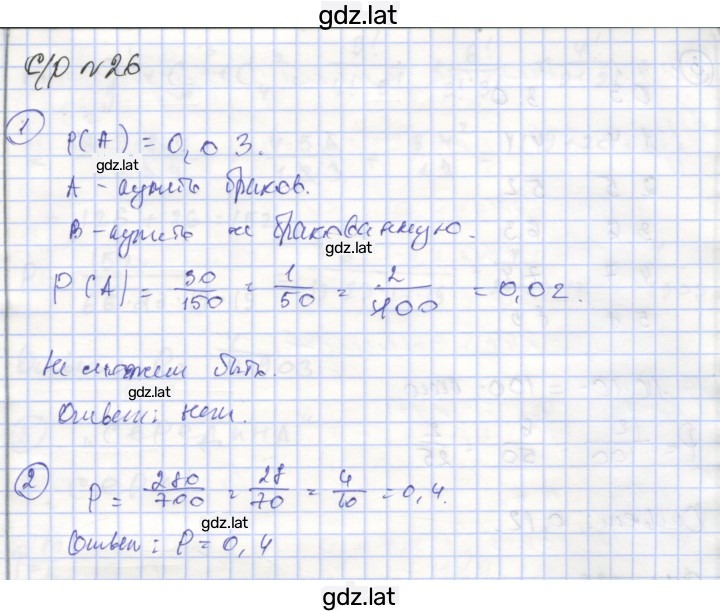 gdz.lat
С/р №26
1
P(A) = 0,03.
gdz.lat
A - купить браков.
B - купить не бракованную.
gdz.lat
P(A) = 30/150 = 1/50 = 2/100 = 0,02.
Не может быть.
gdz.lat
Ответ: нет.
2
P = 280/700 = 28/70 = 4/10 = 0,4.
gdz.lat
Ответ: P = 0,4
gdz.lat